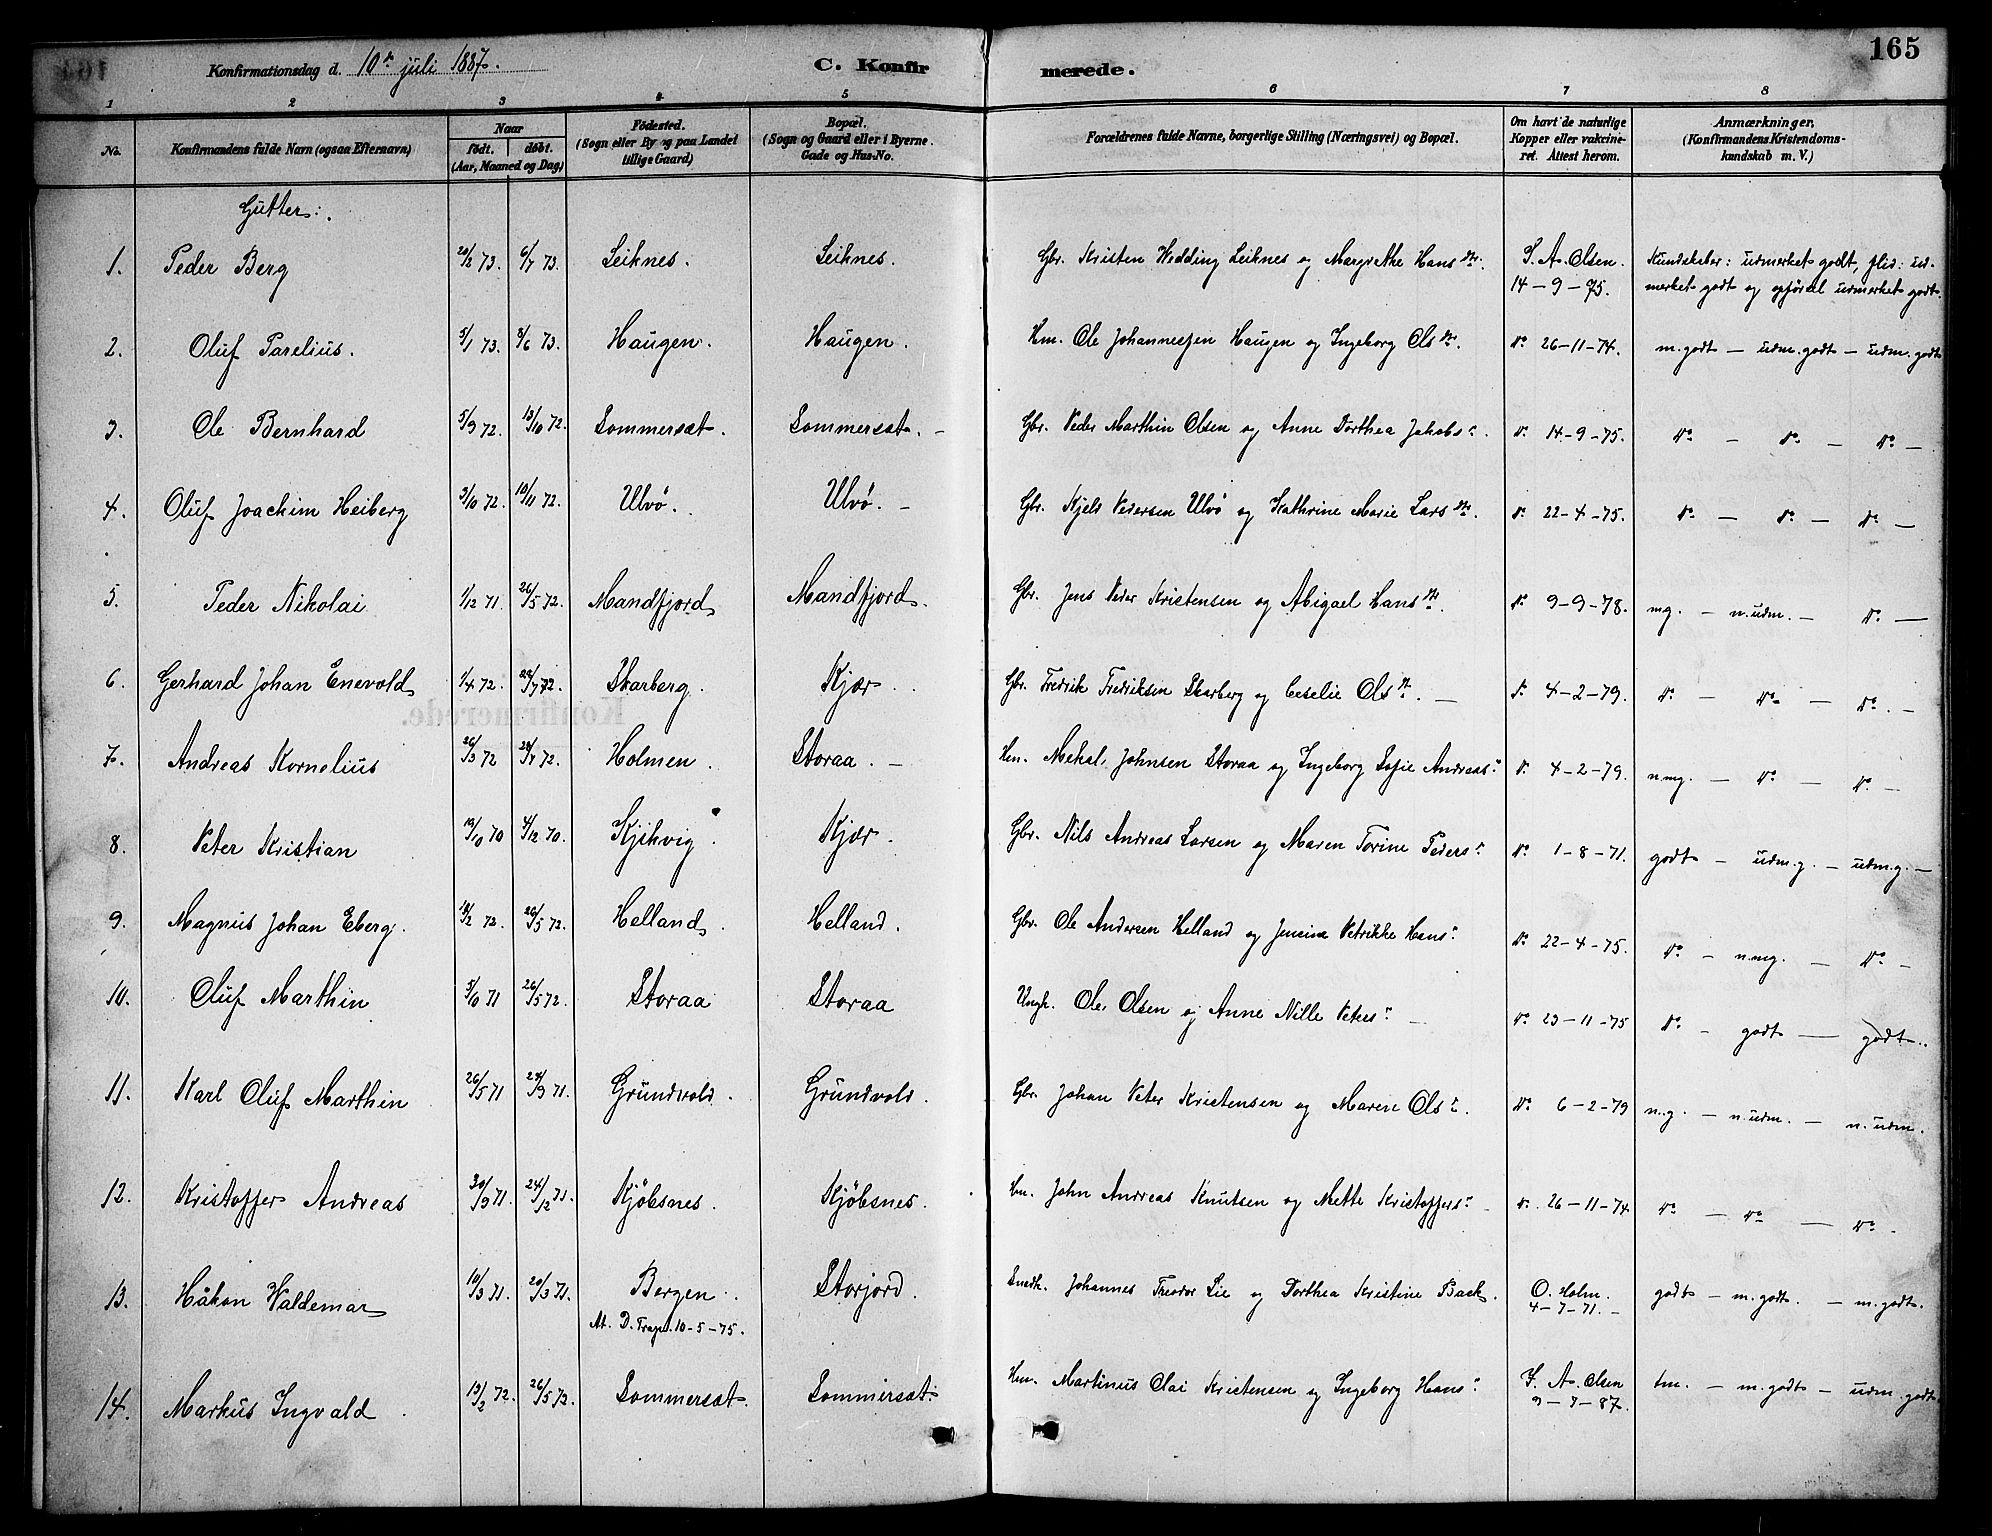 165
Konfirmationsdag d. 10de juli 1887.
C. Konfirmerede.
1 2 3 4 5 6 7 8
No. Konfirmandens fulde Navn (ogsaa Efternavn) Naar födt. döbt. (Aar, Maaned og Dag) Födested. (Sogn eller By og paa Landet tillige Gaard) Bopæl. (Sogn og Gaard eller i Byerne Gade og Hus-No. Forældrenes fulde Navne, borgerlige Stilling (Næringsvei) og Bopæl. Om havt de naturlige Kopper eller vakcineret. Attest herom. Anmærkninger, (Konfirmandens Kristendomskundskab m. V.)
Gutter:
1. Peder Berg 20/2 73. 6/7 73. Leiknes. Leiknes. Gbr. Kristen Wedding Leiknes og Margrethe Hansdtr. S. A. Olsen. 14-9-75. Kundskaber: udmerket godt, flid: udmerket godt og opförsel udmerket godt.
2. Oluf Parelius. 5/1 73. 8/6 73. Haugen. Haugen. Hm. Ole Johannessen Haugen og Ingeborg Olsdtr. do 26-11-74. m. godt – udm. godt – udm. godt
3. Ole Bernhard 5/9 72. 13/10 72. Sommersæt. Sommersæt. – Gbr. Peder Marthin Olsen og Anne Dorthea Jakobsdr. do 14-9-75. do – do – do –
4. Oluf Joachim Heiberg 3/10 72. 10/11 72. Ulvö. Ulvö. – Gbr. Kjels Pedersen Ulvö og Kathrine Marie Larsdtr. do 22-4-75. do – do – do –
5. Peder Nikolai 1/12 71. 26/5 72. Mandfjord Mandfjord. Gbr. Jens Peder Kristensen og Abigael Hansdtr. do 9-9-78. mg. – n. udm. – do –
6. Gerhard Johan Enevold 1/4 72. 28/7 72. Skarberg. Kjær. Gbr. Fredrik Fredriksen Skarberg og Ceselie Olsdr. – do 4-2-79. do – do – do. –
7. Andreas Kornelius 26/3 72 28/7 72. Holmen. Storaa. – Hm. Mekal Johnsen Storaa og Ingeborg Sofie Andreasdr do 4-2-79. n. mg. – do – do –
8. Peter Kristian 19/10 70 4/12 70. Kjikvig. Kjær. Gbr. Nils Andreas Larsen og Maren Torine Pedersdr do 1-8-71. godt – udm. g. – udm. g. –
9. Magnus Johan Eberg. 18/2 72. 26/5 72. Helland. Helland. Gbr. Ole Andersen Helland og Jensine Petrikke Hansdr. do 22-4-75. do – n. mg. – do –
10. Oluf Marthin 5/6 71 26/5 72. Storaa Storaa Ungk. Ole Olsen og Anne Nille Petersdr – do 23-11-75 do – godt – godt.
11. Karl Oluf Marthin 26/5 71 24/9 71. Grundvold. Grundvold. Gbr. Johan Peter Kristensen og Maren Olsdr. do 6-2-79 n. g. – n. udm. – n. udm.
12. Kristoffer Andreas 30/9 71. 24/12 71. Kjöbsnes. Kjöbsnes. Hm. John Andreas Knutsen og Mette Kristoffersdr – do. 26-11-74 do – do – do –
13. Håkon Waldemar 10/3 71. 20/3 71. Bergen. At. D. 10-5-75. Storjord. Snedk. Johannes Theodor Lie og Dorthea Kristine Back. O. Holm. 4-7-71. – godt – m. godt. – m. godt.
14. Markus Ingvald 13/2 72. 26/5 72. Sommersæt. Sommersæt. Hm. Martinus Olai Kristensen og Ingeborg Hansdr S. A. Olsen 9-7-87. tm. – m. godt – udm. godt.